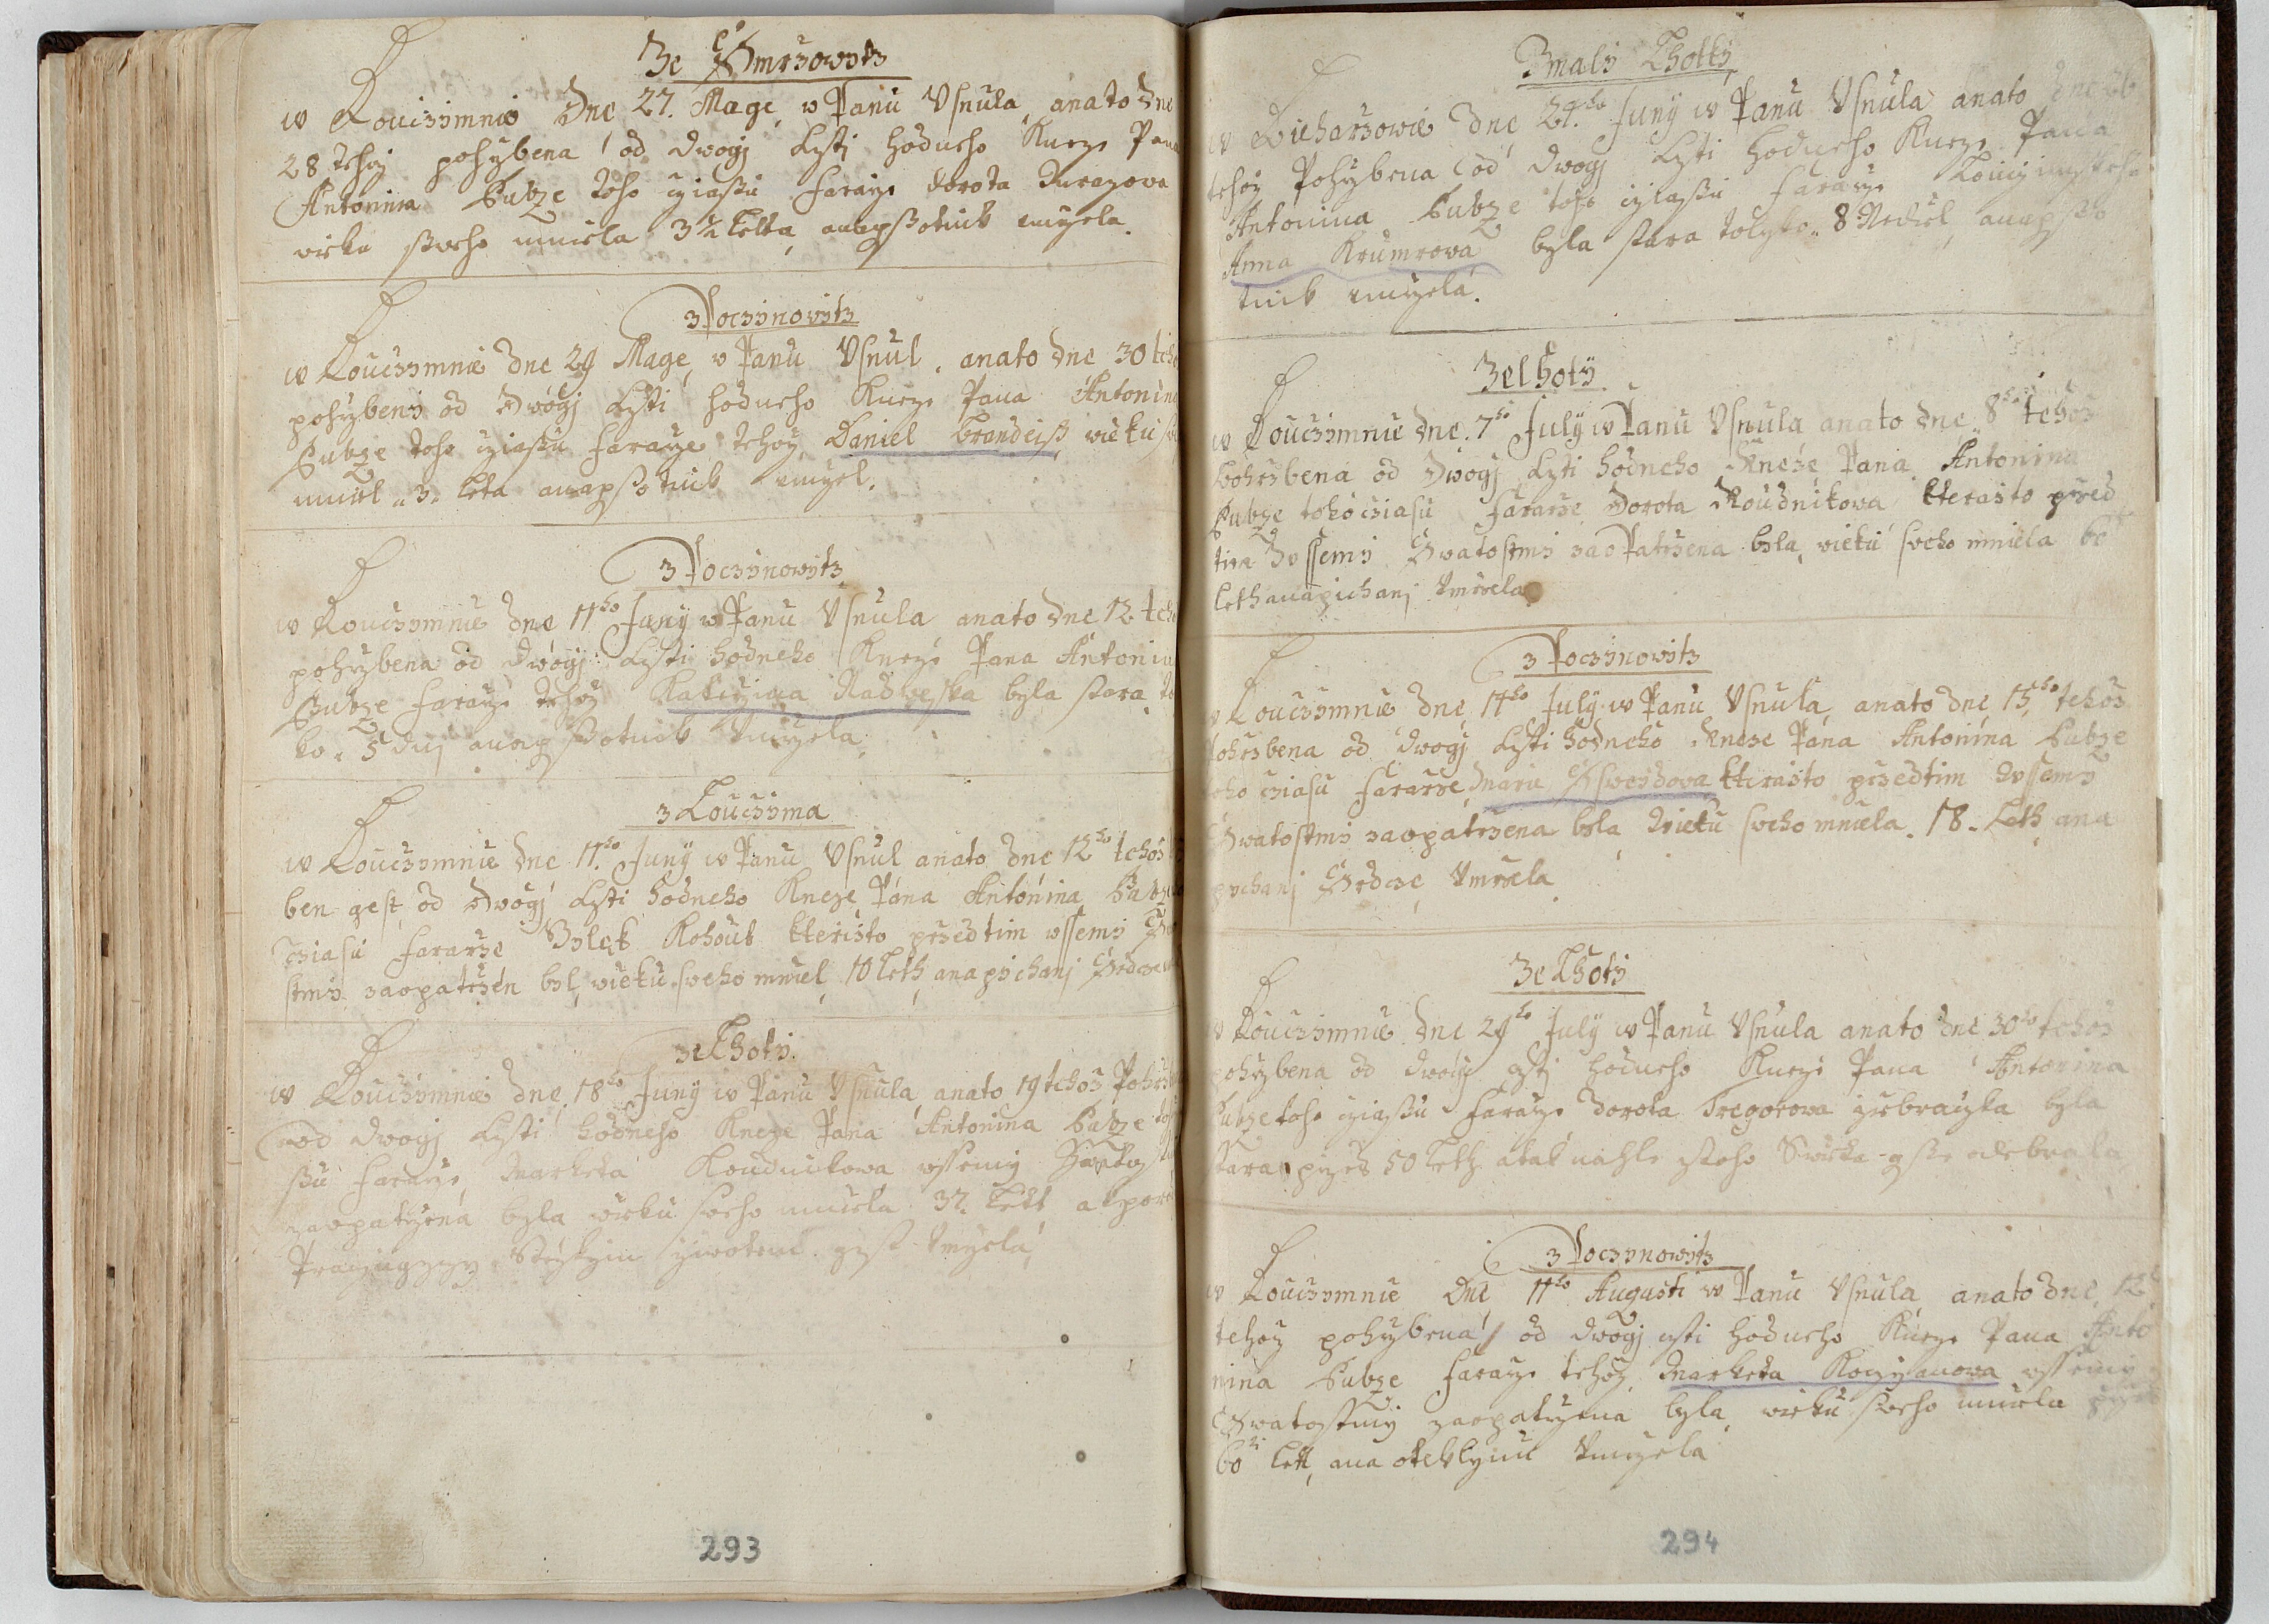 Ze Smrzowitz
w Kouczimnie Dne 27. Mage, w Panu Vsnula, anato dne
28 tehoz pohrzbena od dwogj Czti hodneho Kneze Pana
Antonina Bubze toho cziassu Faraze dorota
wieku sweho mniela 3½ Letha, anapsotnik umrzela.
z Poczinowitz
w Kouczimnie dne 29 Mage, w Panu Vsnul, anato dne 30 teho
pohrzben od Dwogj Czti hodneho Kneze Pana Antonina
Bubze toho cziassu Faraze tehoz Daniel Brandeiss wieku
mniel 3. Leta anapsotnik umrzel.
z Poczinowitz
w Kouczimnie dne 11ho Juny w Panu Vsnula anato Dne 12 teho
pohrzbena od Dwogj Czti hodneho Kneze Pana Antonin
Bubze Faraze tehoz Katerzina Radweska byla stara to
ko 5 dnj anapsotnik Vmrzela.
z Louczima
w Kouczimnie dne 11ho Juny w Panu Vsnul anato dne 12ho tehoz
ben gest od Dwogj Czti hodneho Kneze Pana Antonina Bubze
cziasu Fararze Kohout kteristo przedtim wssemi
stmi zaopatrzen byl, wieku sweho mniel 10 Leth, anapichanj Srdcze
ze Lhoti
w Kouczimnie dne 18ho Juny w Panu Vsnula anato 19 tehoz Pohrz
od dwogj Czti hodneho Kneze Pana Antonina Bubze to
ssu Faraze Marketa Roudnikowa wssemi
zaopatrzena byla wieku sweho mniela 37. Lett a
gest Vmrzela
293
Zmaly Lhotty
w dne 27ho Juny w Panu Vsnula anato dne
tehoz Pohrzbena od dwogj Czti hodneho Kneze Pana
Antonina Bubze toho cziassu Faraze
Anna Krumrowa byla stara tolyko 8 Nediel, anapso
tnik umrzela.
Ze Lhoty
w Kouczimnie dne 7ho July w Panu Vsnula anato dne 8ho tehoz
Pohrzbena od Dwogj Czti hodneho Kneze Pana Antonina
Bubze toho cziasu Fararze Dorota Roudnikowa kterasto przed
tim Wssemi Swatostmi zaopatrzena byla, wieku sweho mniela 60
leth anapichanj Vmrzela
z Poczinowitz
w Kouczimnie dne 14ho July w Panu Vsnula, anato dne 15ho tehoz
Pohrzbena od Dwogj Czti hodneho Kneze Pana Antonina Bubze
toho cziasu Fararze, Maria kterasto przedtim Wssemi
Swatostmi zaopatrzena byla Wieku sweho mniela 18. Leth ana
pichanj Srdcze Vmrzela
Ze Lhoti
w Kouczimnie dne 29ho July w Panu Vsnula anato dne 30ho tehoz
pohrzbena od dwogj czti hodneho Kneze Pana Antonina
Bubze toho cziassu Faraze Dorota Tregorowa byla
stara przes 50 Leth a tak nahle stoho Swieta gste odebrala
z Poczinowitz
w Kouczimnie Dne 11ho Augusti w Panu Vsnula, anato dne, 12
tehoz pohrzbena od dwogj czti hodneho Kneze Pana Anto
nina Bubze Faraze tehoz Marketa wssemi
Swatostmi zaopatrzena byla wieku sweho mniela
60 Lett, ana Vmrzela
294